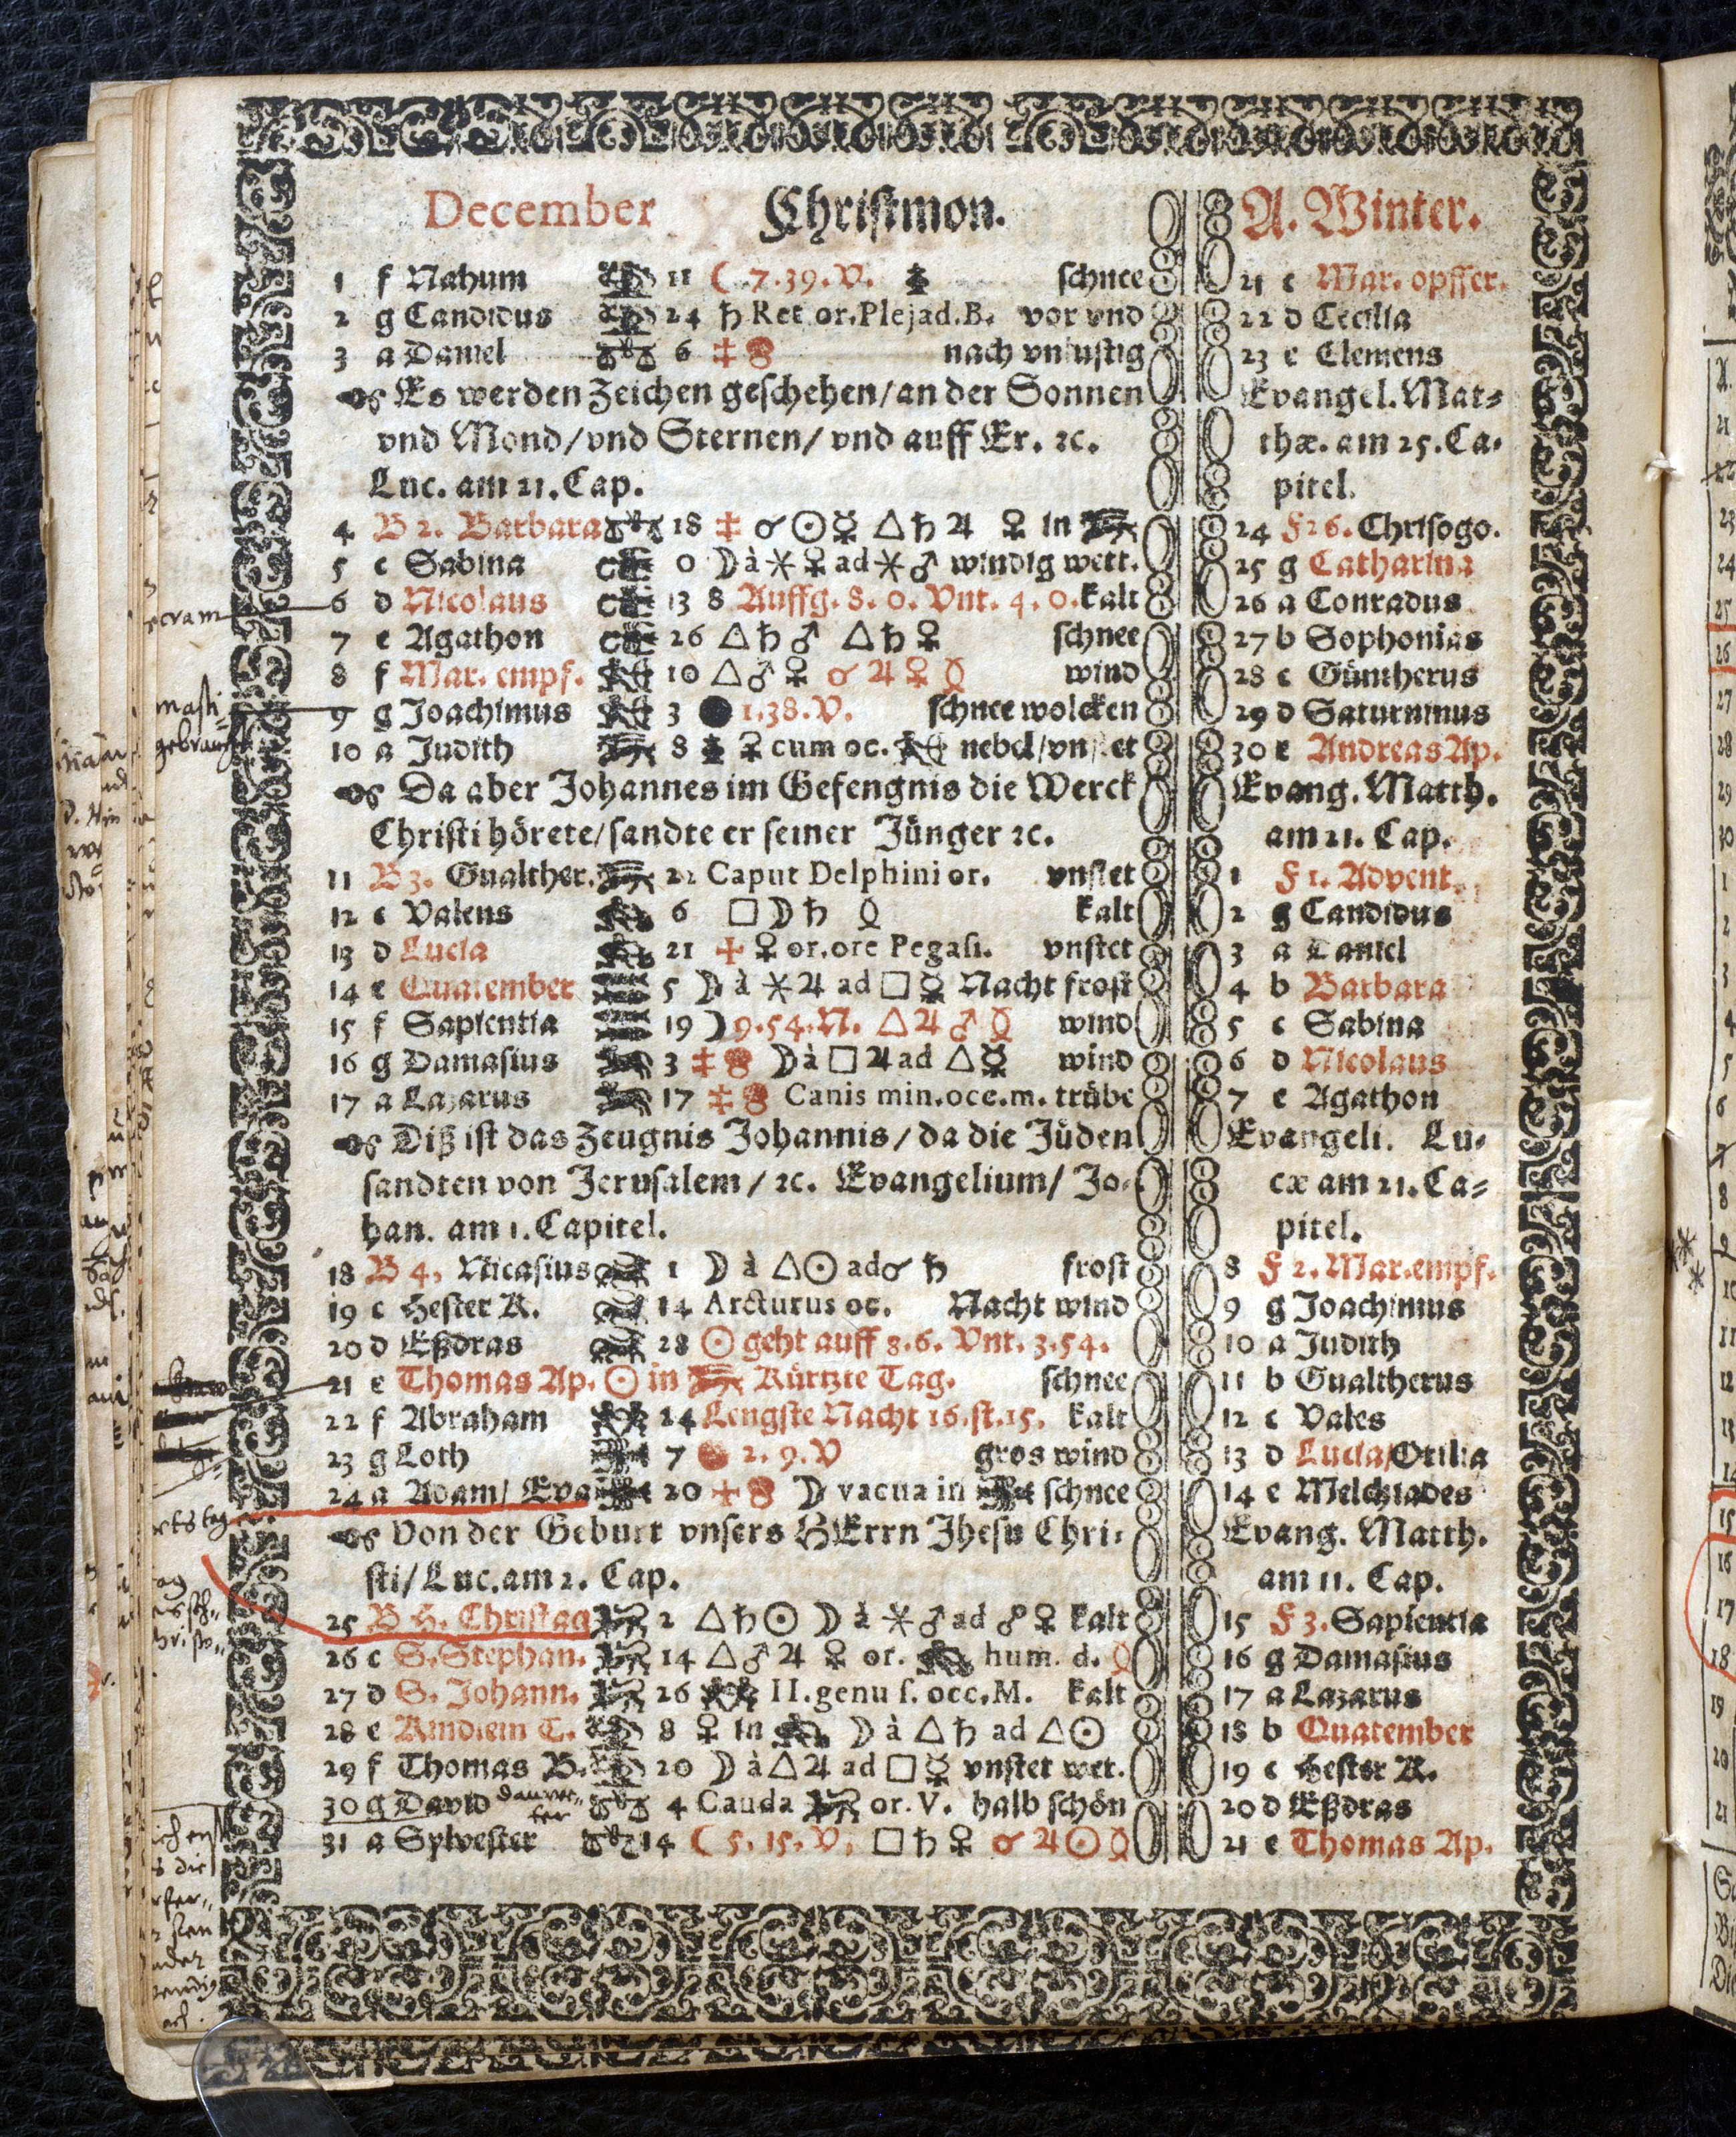 December Christmon. A. Winter.
1 f Nahum 11 ☾ 7.39.V. schnee 21 c Mar. opffer.
2 g Candidus 24 ♄ Ret or. Plejad. B. vor vnd 22 d Cecilia
3 a Daniel 6 nach vnlustig 23 e Clemens
Es werden Zeichen geschehen/an der Sonnen Evangel. Mat-
vnd Mond/vnd Sternen/ vnd auff Er. ꝛc. thæ. am 25. Ca-
Luc. am 21. Cap. pitel.
4 B 2. Barbara 18 ☌ ☉ ☿ △ ♄ ♃ ♀ in 24 F 26. Chrisogo.
5 c Sabina 0 ☽ à ⚹ ♀ ad ⚹ ♂ windig wett. 25 g Catharina
6 d Nicolaus 13 8 Auffg. 8. 0. Vnt. 4. 0. kalt 26 a Conradus
7 e Agathon 26 △ ♄ ♂ △ ♄ ♀ schnee 27 b Sophonias
8 f Mar. empf. 10 △ ♂ ♀ ☌ ♃ ♀ wind 28 c Güntherus
9 g Joachimus 3 ● 1.38.V. schnee wolcken 29 d Saturninus
10 a Judith 8 ♀ cum oc. nebel/vnstet 30 e Andreas Ap.
Da aber Johannes im Gefengnis die Werck Evang. Matth.
Christi hörete/sandte er seiner Jünger ꝛc. am 21. Cap.
11 B 3. Gualther. 22 Caput Delphini or. vnstet 1 F 1. Advent.
12 c Valens 6 □ ☽ ♄ kalt 2 g Candidus
13 d Lucia 21 ♀ or. ore Pegasi. vnstet 3 a Daniel
14 e Quatember 5 ☽ à ⚹ ♃ ad □ ☿ Nacht frost 4 b Barbara
15 f Sapientia 19 ☽ 9.54.N. △ ♃ ♂ wind 5 c Sabina
16 g Damasius 3 ☽ à □ ♃ ad △ ☿ wind 6 d Nicolaus
17 a Lazarus 17 Canis min. occ. m. trübe 7 e Agathon
Diß ist das Zeugnis Johannis/da die Jüden Evangeli. Lu-
sandten von Jerusalem/ ꝛc. Evangelium/ Jo- cæ am 21. Ca-
han. am 1. Capitel. pitel.
18 B 4, Nicasius 1 ☽ à △ ☉ ad ☌ ♄ frost 8 F 2. Mar. empf.
19 c Hester K. 14 Arcturus oc. Nacht wind 9 g Joachimus
20 d Eßdras 28 ☉ geht auff 8.6. Vnt. 3.54. 10 a Judith
21 e Thomas Ap. ☉ in Kürtzte Tag. schnee 11 b Gualtherus
22 f Abraham 24 Lengste Nacht 16. st. 15. kalt 12 c Vales
23 g Loth 7 2. 9. V gros wind 13 d Lucia/Otilia
24 a Adam/ Eva 20 ☽ vacua in schnee 14 e Melchiades
Von der Geburt vnsers HErrn Jhesu Chri- Evang. Matth.
sti/Luc. am 2. Cap. am 11. Cap.
25 B H. Christag 2 △ ♄ ☉ ☽ à ⚹ ♂ ad ☍ ♀ kalt 15 F 3. Sapientia
26 c S. Stephan. 14 △ ♂ ♃ ♀ or. hum. d. 16 g Damasius
27 d S. Johann. 26 II. genu s. occ. M. kalt 17 a Lazarus
28 e Kindlein T. 8 ♀ in ☽ à △ ♄ ad △ ☉ 18 b Quatember
29 f Thomas B. 20 ☽ à △ ♃ ad □ ☿ vnstet wet. 19 c Hester K.
30 g David 4 Cauda or. V. halb schön 20 d Eßdras
31 a Sylvester 14 ☾ 5. 15. V. □ ♄ ♀ ☌ ♃ ☉ 21 e Thomas Ap.